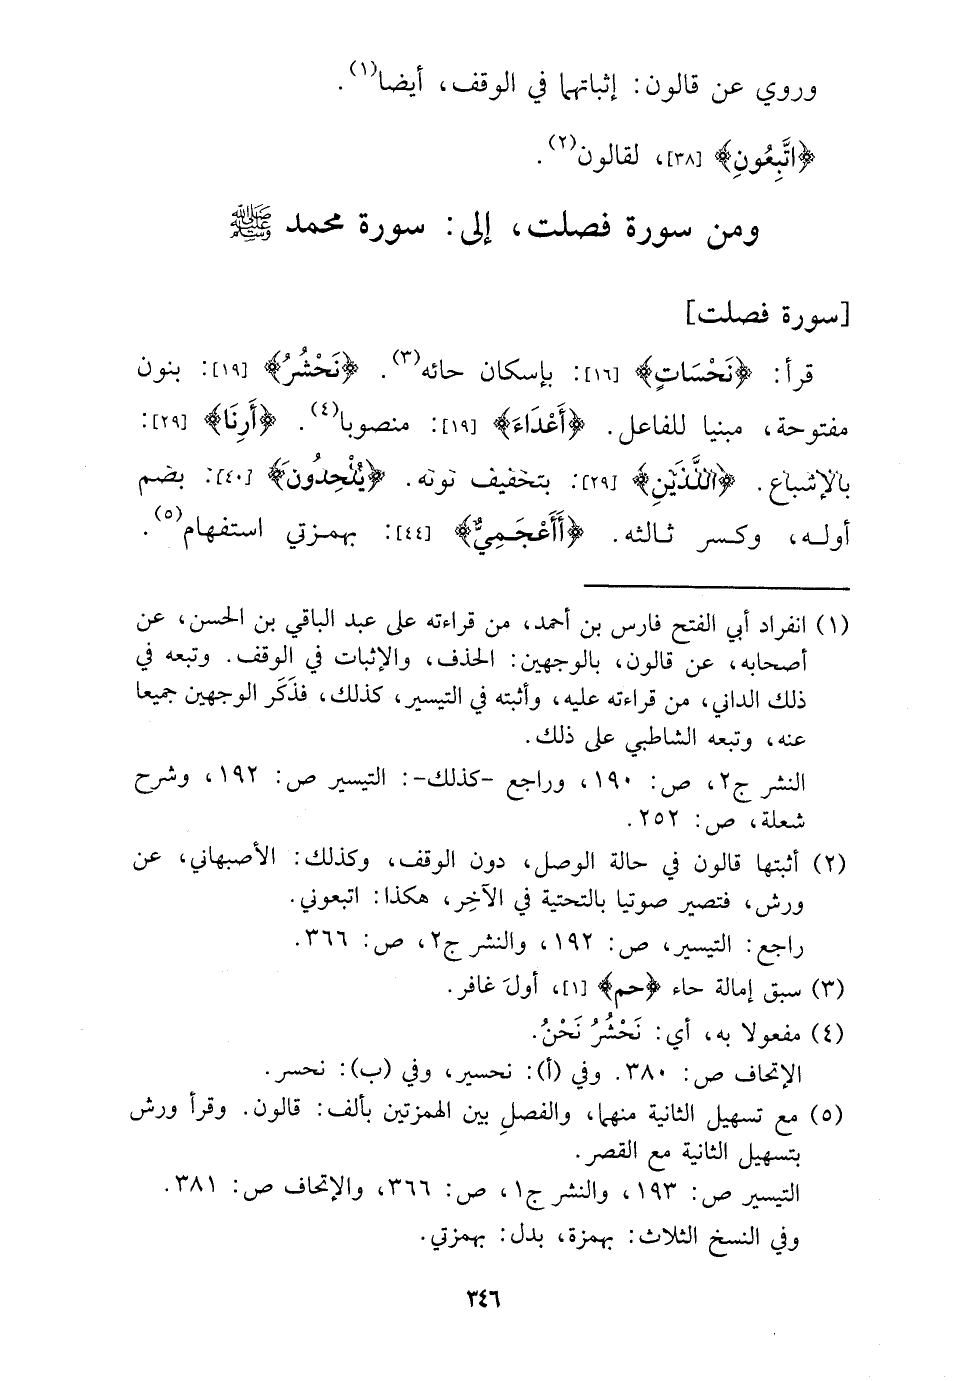 وروي عن قالون: إثباتها في الوقف، أيضا(١).
﴿اتَّبِعُونِ﴾ [٣٨]، لقالون(٢).
ومن سورة فصلت، إلى: سورة محمد ﷺ
[سورة فصلت]
قرأ: ﴿نَحْسَاتٍ﴾ [١٦]: بإسكان حائه(٣). ﴿نَحْشُرُ﴾ [١٩]: بنون
مفتوحة، مبنيا للفاعل. ﴿أَعْدَاءَ﴾ [١٩]: منصوبا(٤). ﴿أَرِنَا﴾ [٢٩]:
بالإشباع. ﴿اللَّذَيْنِ﴾ [٢٩]: بتخفيف نونه. ﴿يُلْحِدُونَ﴾ [٤٠]: بضم
أولـه، وكـسر ثـالثه. ﴿أَأَعْجَمِيٌّ﴾ [٤٤]: بهمـزتي استفهام(٥).
(١) انفراد أبي الفتح فارس بن أحمد، من قراءته على عبد الباقي بن الحسن، عن
أصحابه، عن قالون، بالوجهين: الحذف، والإثبات في الوقف. وتبعه في
ذلك الداني، من قراءته عليه، وأثبته في التيسير، كذلك، فذَكَر الوجهين جميعا
عنه، وتبعه الشاطبي على ذلك.
النشر ج٢، ص: ١٩٠، وراجع -كذلك-: التيسير ص: ١٩٢، وشرح
شعلة، ص: ٢٥٢.
(٢) أثبتها قالون في حالة الوصل، دون الوقف، وكذلك: الأصبهاني، عن
ورش، فتصير صوتيا بالتحتية في الآخِر، هكذا: اتبعوني.
راجع: التيسير، ص: ١٩٢، والنشر ج٢، ص: ٣٦٦.
(٣) سبق إمالة حاء ﴿حم﴾ [١]، أولَ غافر.
(٤) مفعولا به، أي: نَحْشُرُ نَحْنُ.
الإتحاف ص: ٣٨٠. وفي (أ): نحسير، وفي (ب): نحسر.
(٥) مع تسهيل الثانية منهما، والفصلِ بين الهمزتين بألف: قالون. وقرأ ورش
بتسهيل الثانية مع القصر.
التيسير ص: ١٩٣، والنشر ج١، ص: ٣٦٦، والإتحاف ص: ٣٨١.
وفي النسخ الثلاث: بهمزة، بدل: بهمزتي.
٣٤٦